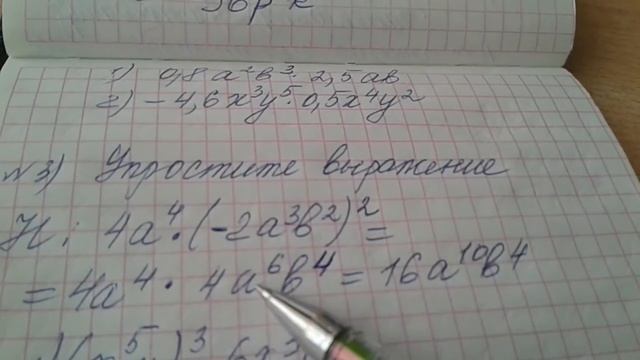 1) 0,8a²b³ · 2,5ab
2) -4,6x³y⁵ · 0,5x⁴y²
N3) Упростите выражение
Н: 4a⁴ · (-2a³b²)² =
= 4a⁴ · 4a⁶b⁴ = 16a¹⁰b⁴